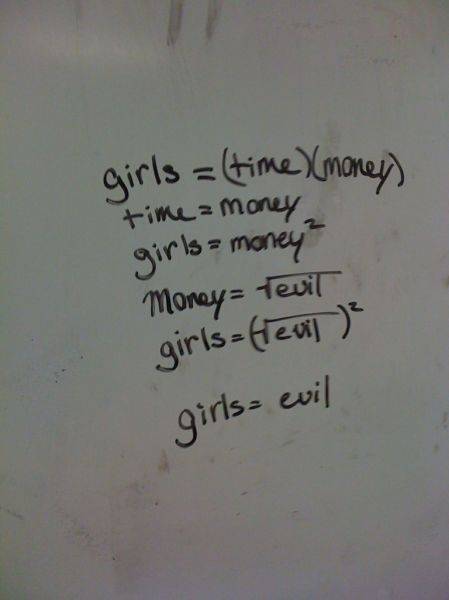 girls = (time)(money)
time = money
girls = money²
Money = √evil
girls = (√evil)²
girls = evil